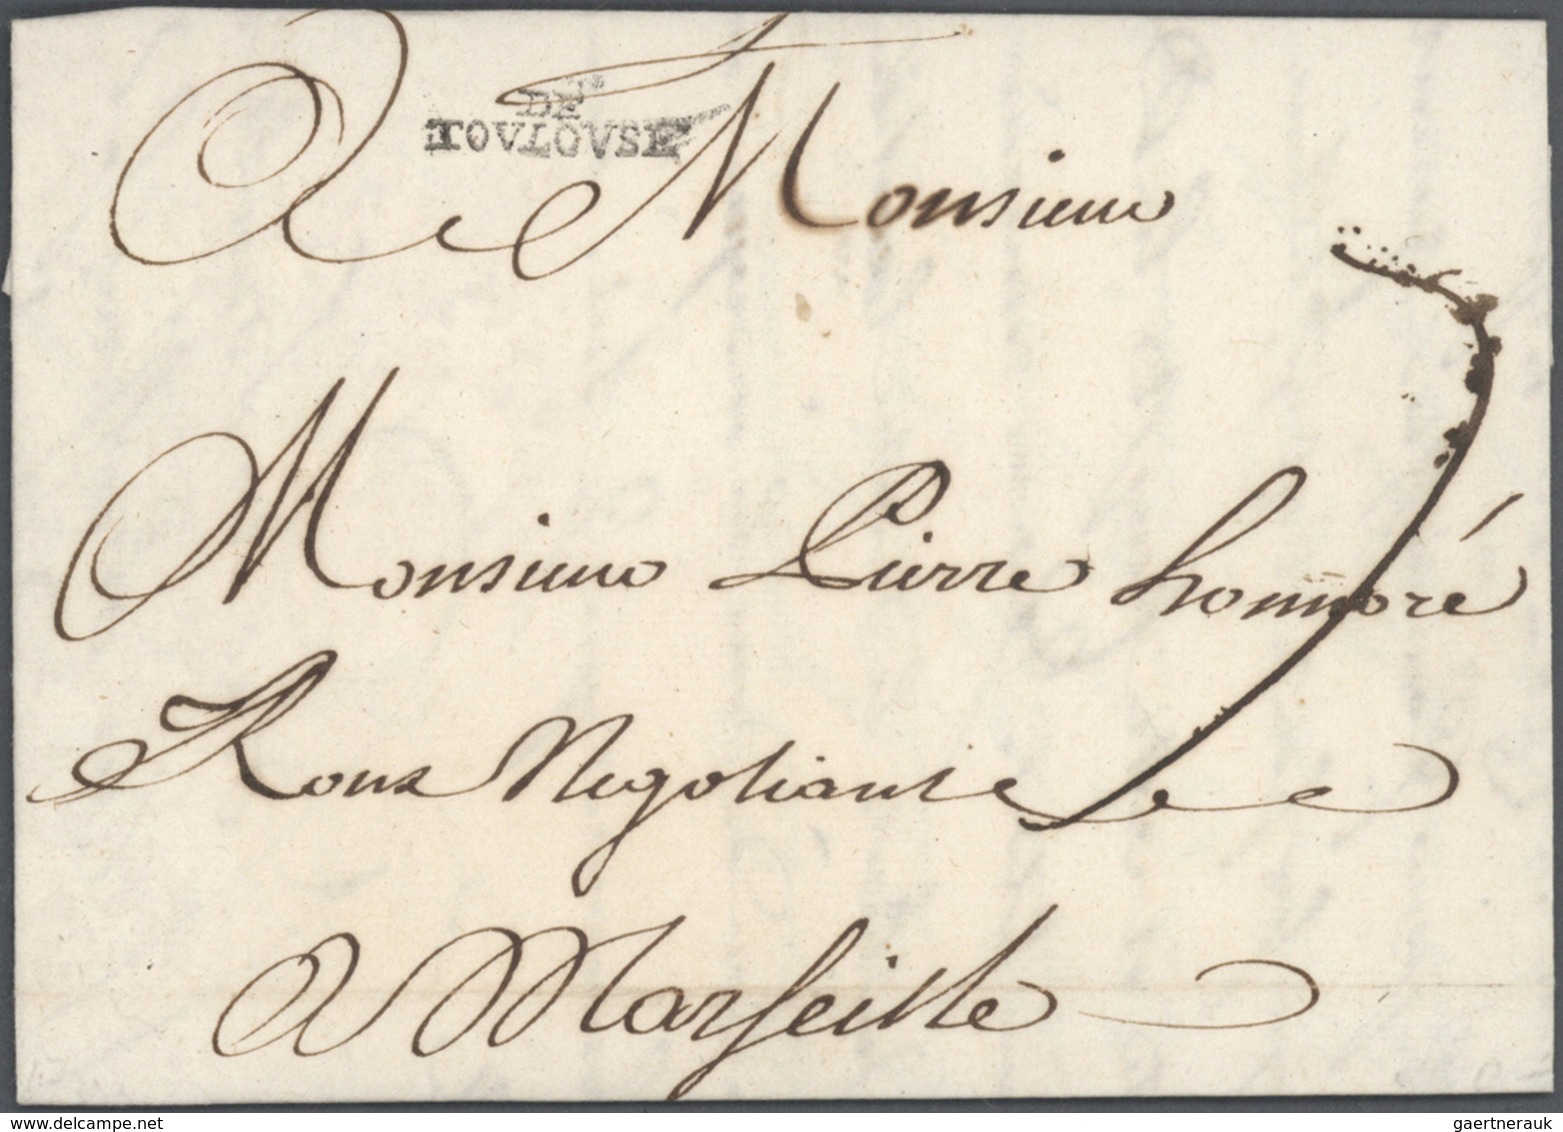 DE
TOVLOVSE
A Monsieur
Monsieur Pierre honnoré
Roux Negotiant
A Marseille
gaertnerauk